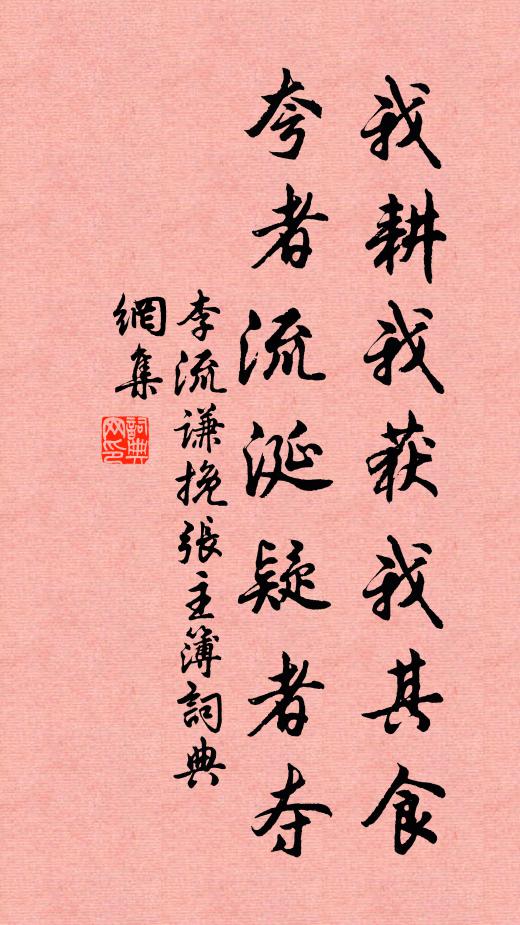 我耕我获我其食
夸者流涎疑者夺
李流谦挽張主簿詞典
網集
詞典
网印